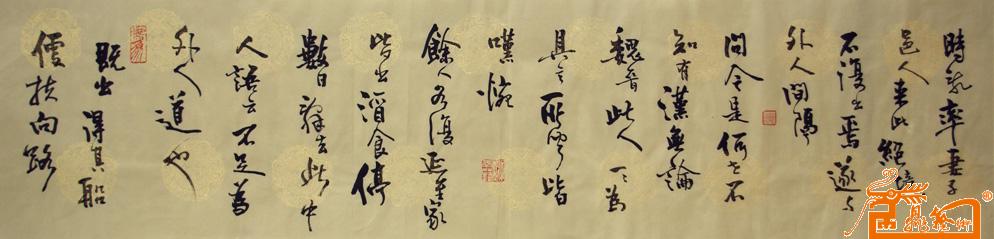 時亂率妻子
邑人来此絕境
不復出焉遂与
外人間隔
問今是何世不
知有漢無論
魏晋此人一一為
具言所聞皆
嘆惋
餘人各復延至家
皆出酒食停
數日辞去此中
人語云不足為
外人道也
既出得其船
便扶向路